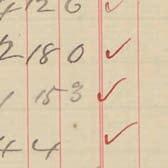 4 12 6 ✓
2 18 0 ✓
1 15 3 ✓
4 4 ✓